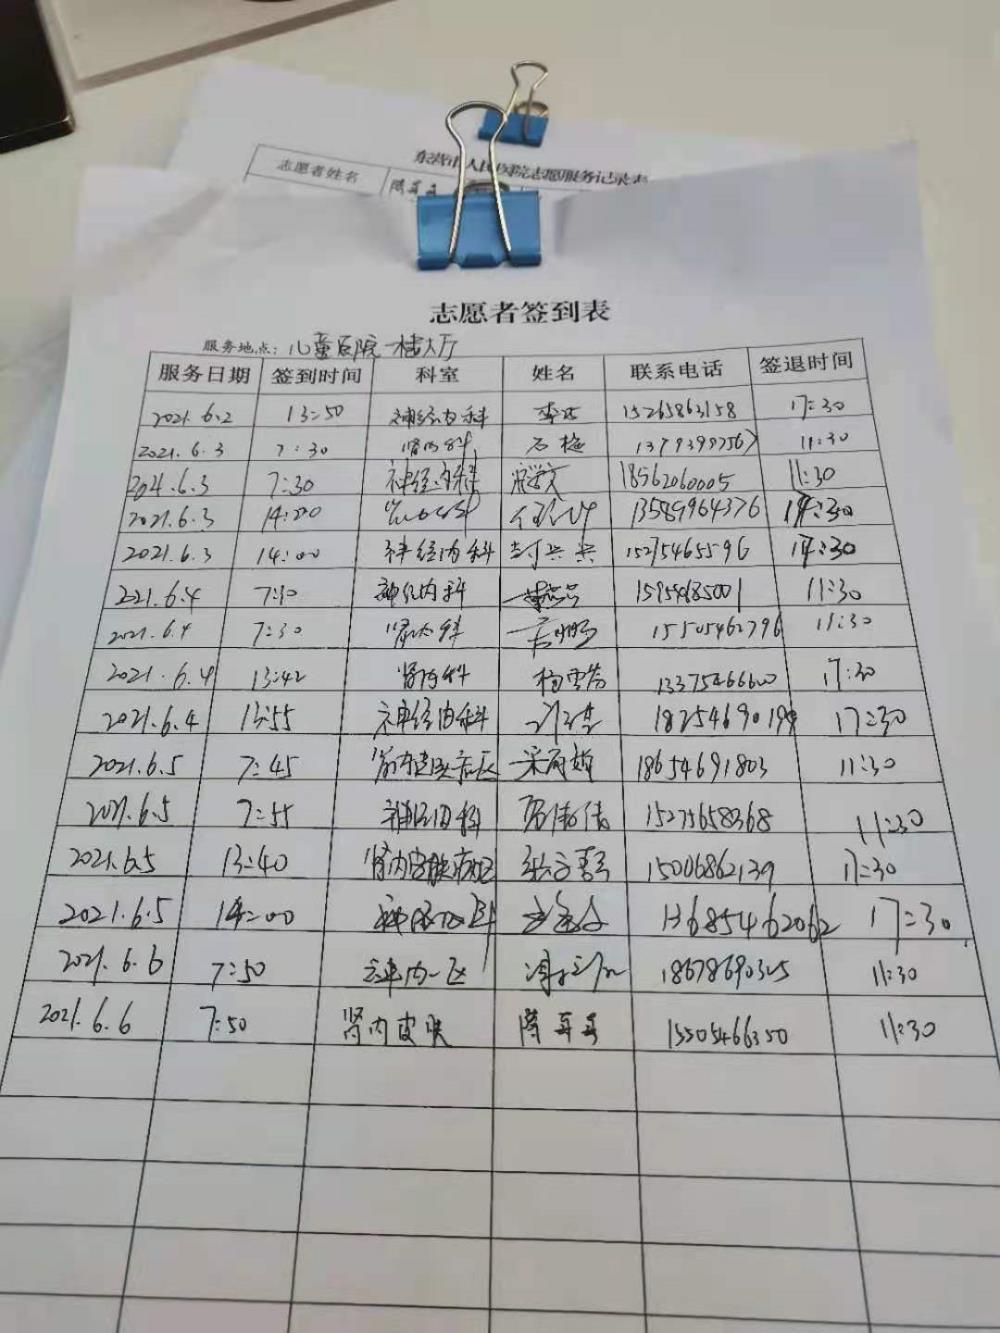 东营市人民医院志愿服务记录表
志愿者姓名 陈苒苒
志愿者签到表
服务地点：儿童医院一楼大厅
服务日期 签到时间 科室 姓名 联系电话 签退时间
2021.6.2 13:50 神经内科 15265863158 17:30
2021.6.3 7:30 肾内科 石梅 11:30
2021.6.3 7:30 神经内科 18562060005 11:30
2021.6.3 14:00 13589964376 17:30
2021.6.3 14:00 神经内科 封兴兴 15275465596 17:30
2021.6.4 7:30 神经内科 15954685001 11:30
2021.6.4 7:30 肾内科 15505462796 11:30
2021.6.4 13:42 肾内科 杨雪芬 13375466600 17:30
2021.6.4 13:55 神经内科 17:30
2021.6.5 7:45 18654691803 11:30
2021.6.5 7:55 神经内科 15275658368 11:30
2021.6.5 13:40 肾内皮肤病区 15006862139 17:30
2021.6.5 14:00 13685462062 17:30
2021.6.6 7:50 神内一区 18678690325 11:30
2021.6.6 7:50 肾内皮肤 陈苒苒 15505466350 11:30